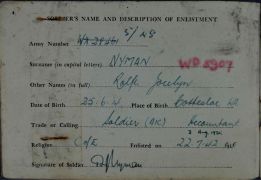 SOLDIER'S NAME AND DESCRIPTION OF ENLISTMENT
Army Number 5/48
Surname (in capital letters) NYMAN WD 5907
Other Names (in full) Rolf Jocelyn
Date of Birth 25.6.21 Place of Birth Cottesloe WA
Trade or Calling Soldier (AIC) Accountant
2 Aug
Religion C of E Enlisted on 22.7.42
Signature of Soldier RJ Nyman